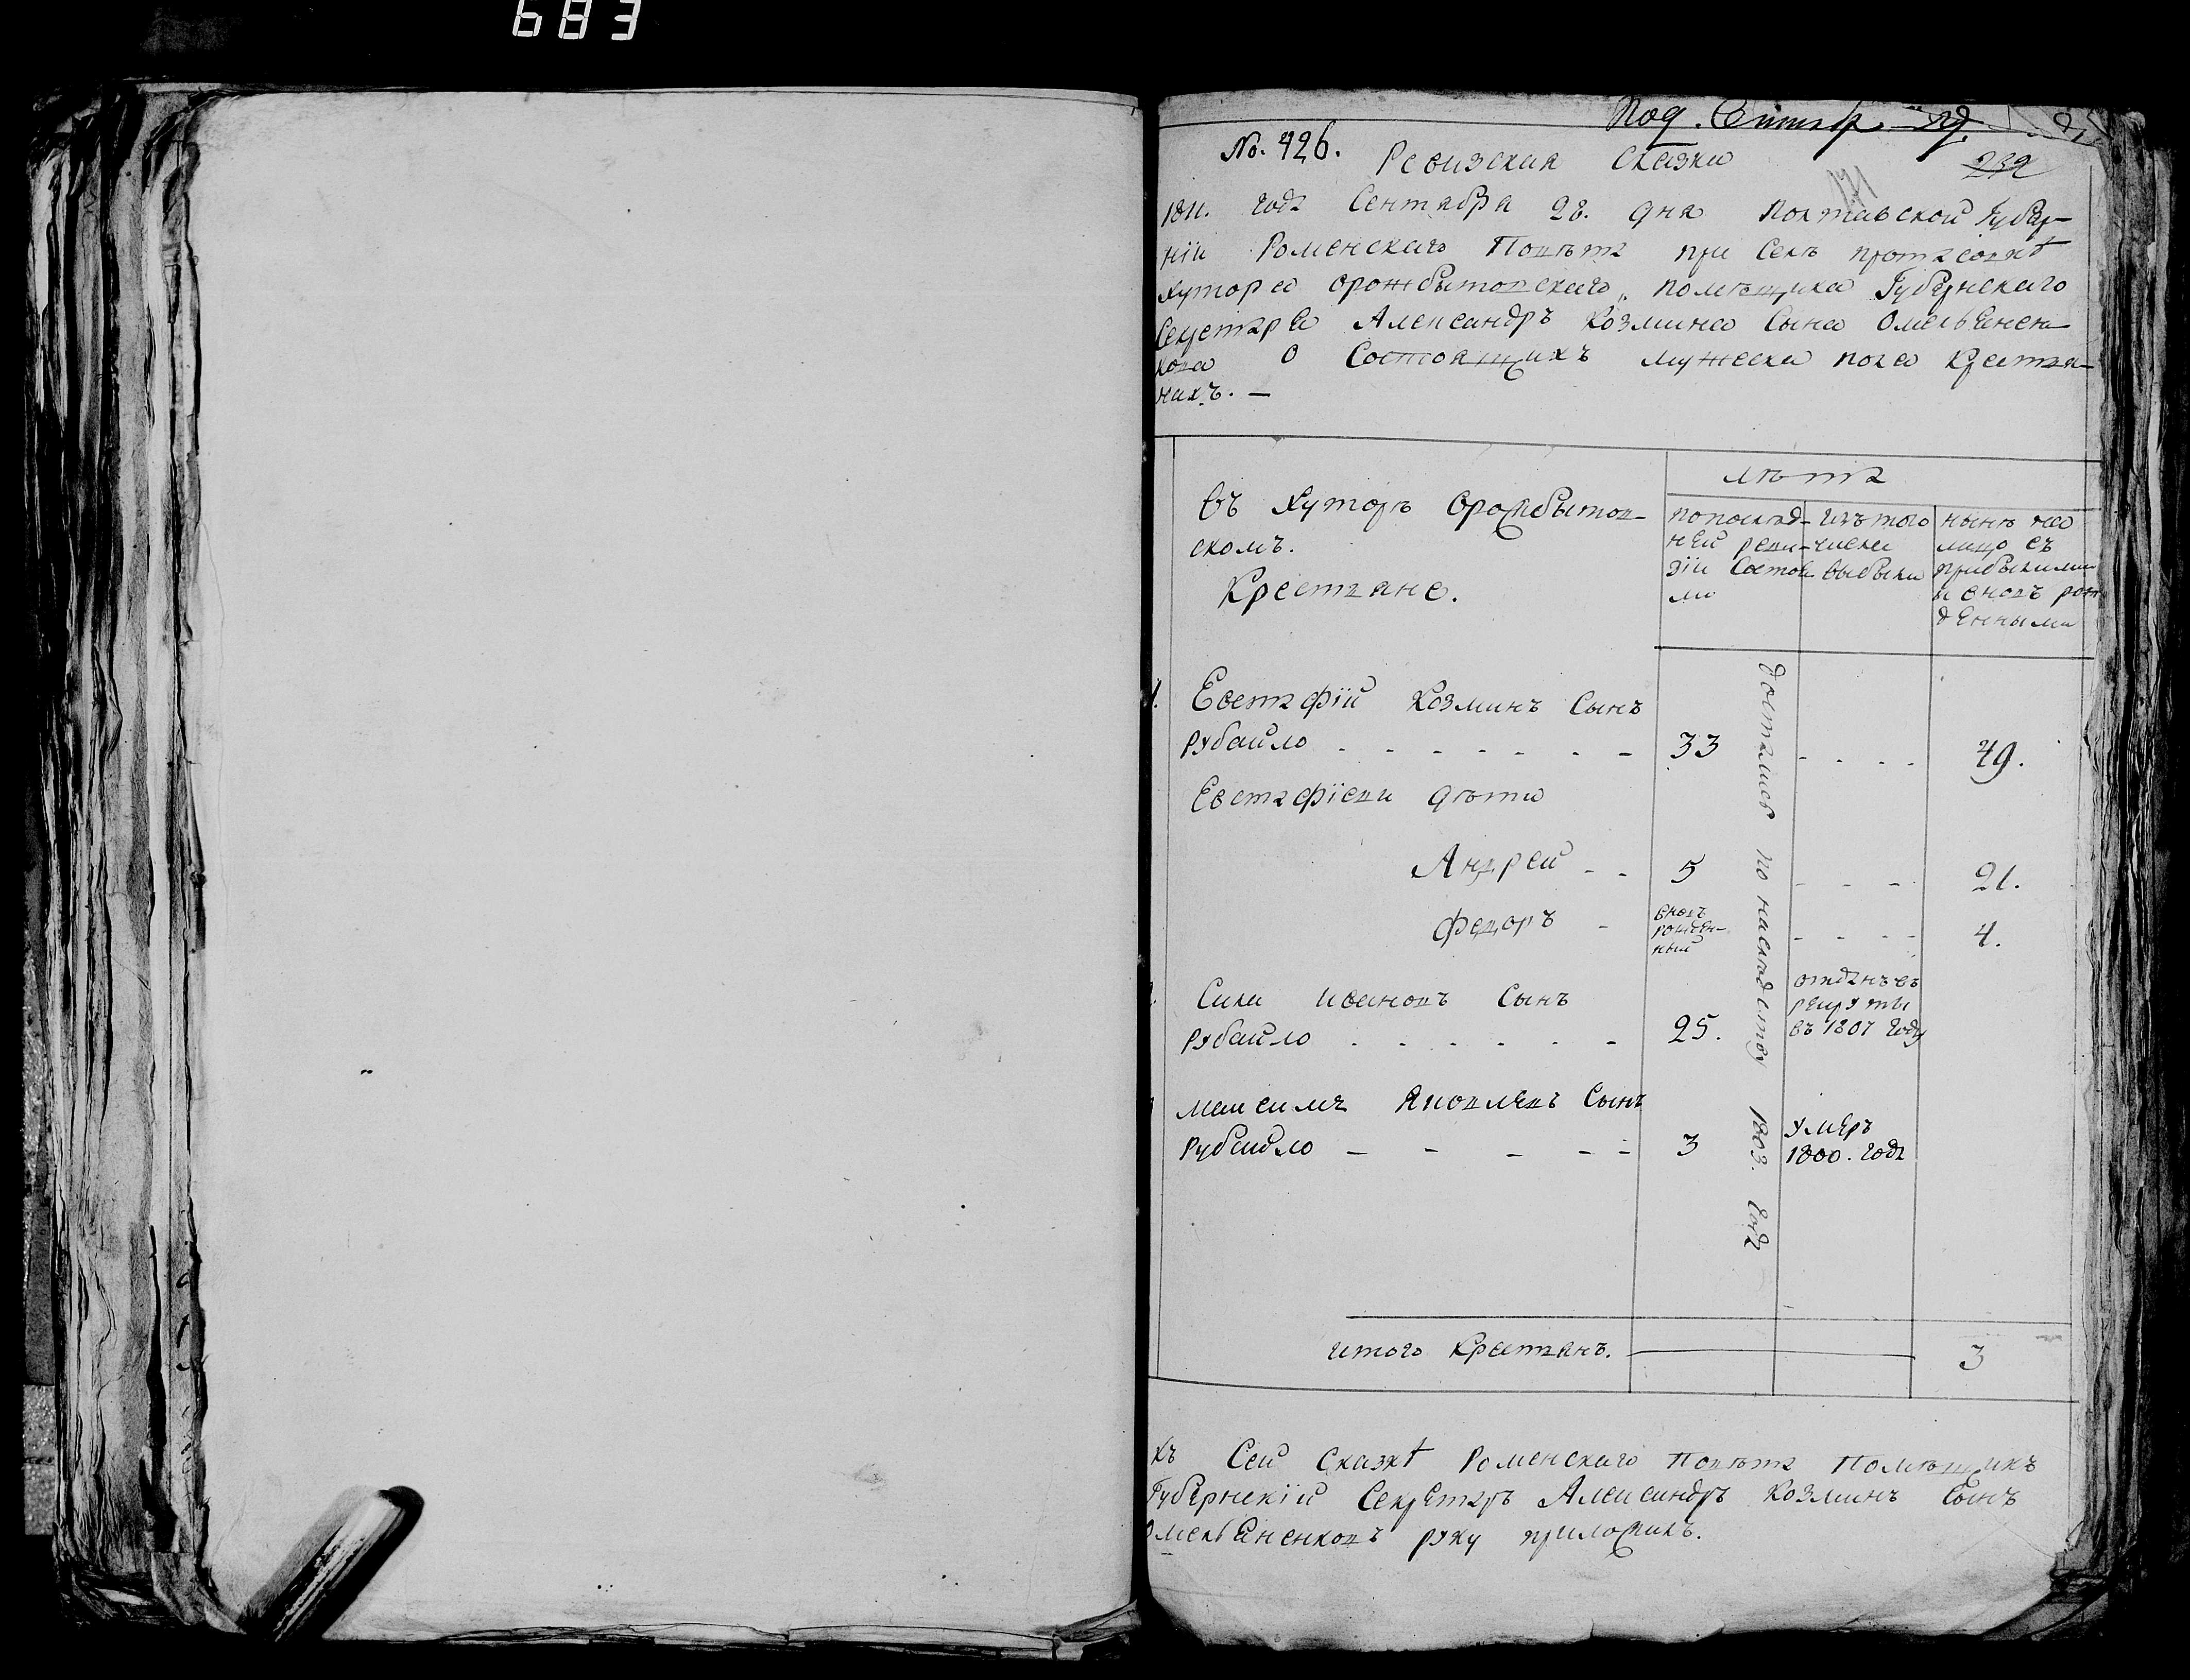 683
Под. Сентяб
No. 426.
Ревизская Сказка
232
171
1811. года Сентября 28. дня Полтавской Губер-
нїи Роменскаго Повѣта при Селѣ протасовкѣ
хутора орожбытовскаго, помѣщика Губернскаго
Секретаря Александръ Козмина Сына Омельяненъ
кова О Состоящихъ мужеска пола Крестья-
нахъ. —
лѣта
Въ Хуторѣ Орожбытов-
скомъ.
Крестьяне.
по послѣд-
ней реви-
зїи Состоя
ли
изъ того
числа
выбыли
нынѣ на
лицо съ
прибылыми
и вновь рож
денными
1. Евстафїй Козминъ Сынъ
рубайло - - - - - - - 33 - - - - 49.
Евстафїеви дѣти
Андрей - - 5 - - - 21.
Федоръ - вновь рожден-ный - - - - 4.
Сила Ивановъ Сынъ
рубайло - - - - - - 25. отданъ въ рекруты въ 1807 году
максимъ Яковлевъ Сынъ
рубайло - - - - - 3 умеръ 1800. года
достались по наслѣдству 1803. года
итого Крестьянъ. 3
Къ Сей Сказкѣ Роменскаго Повѣта Помѣщикъ
Губернскїй Секретарь Александръ Козминъ Сынъ
Омельяненковъ руку приложилъ.